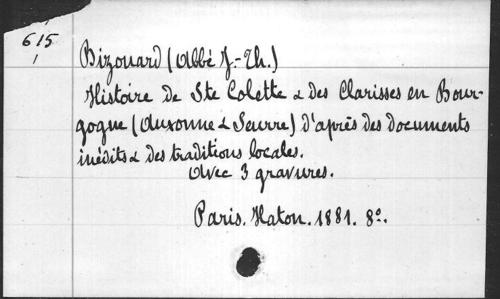 615
1
Bizouard (Abbé J.-Th.)
Histoire de Ste Colette & des Clarisses en Bour-
gogne (Auxonne & Seurre) d'après des documents
inédits & des traditions locales.
Avec 3 gravures.
Paris. Haton. 1881. 8º.